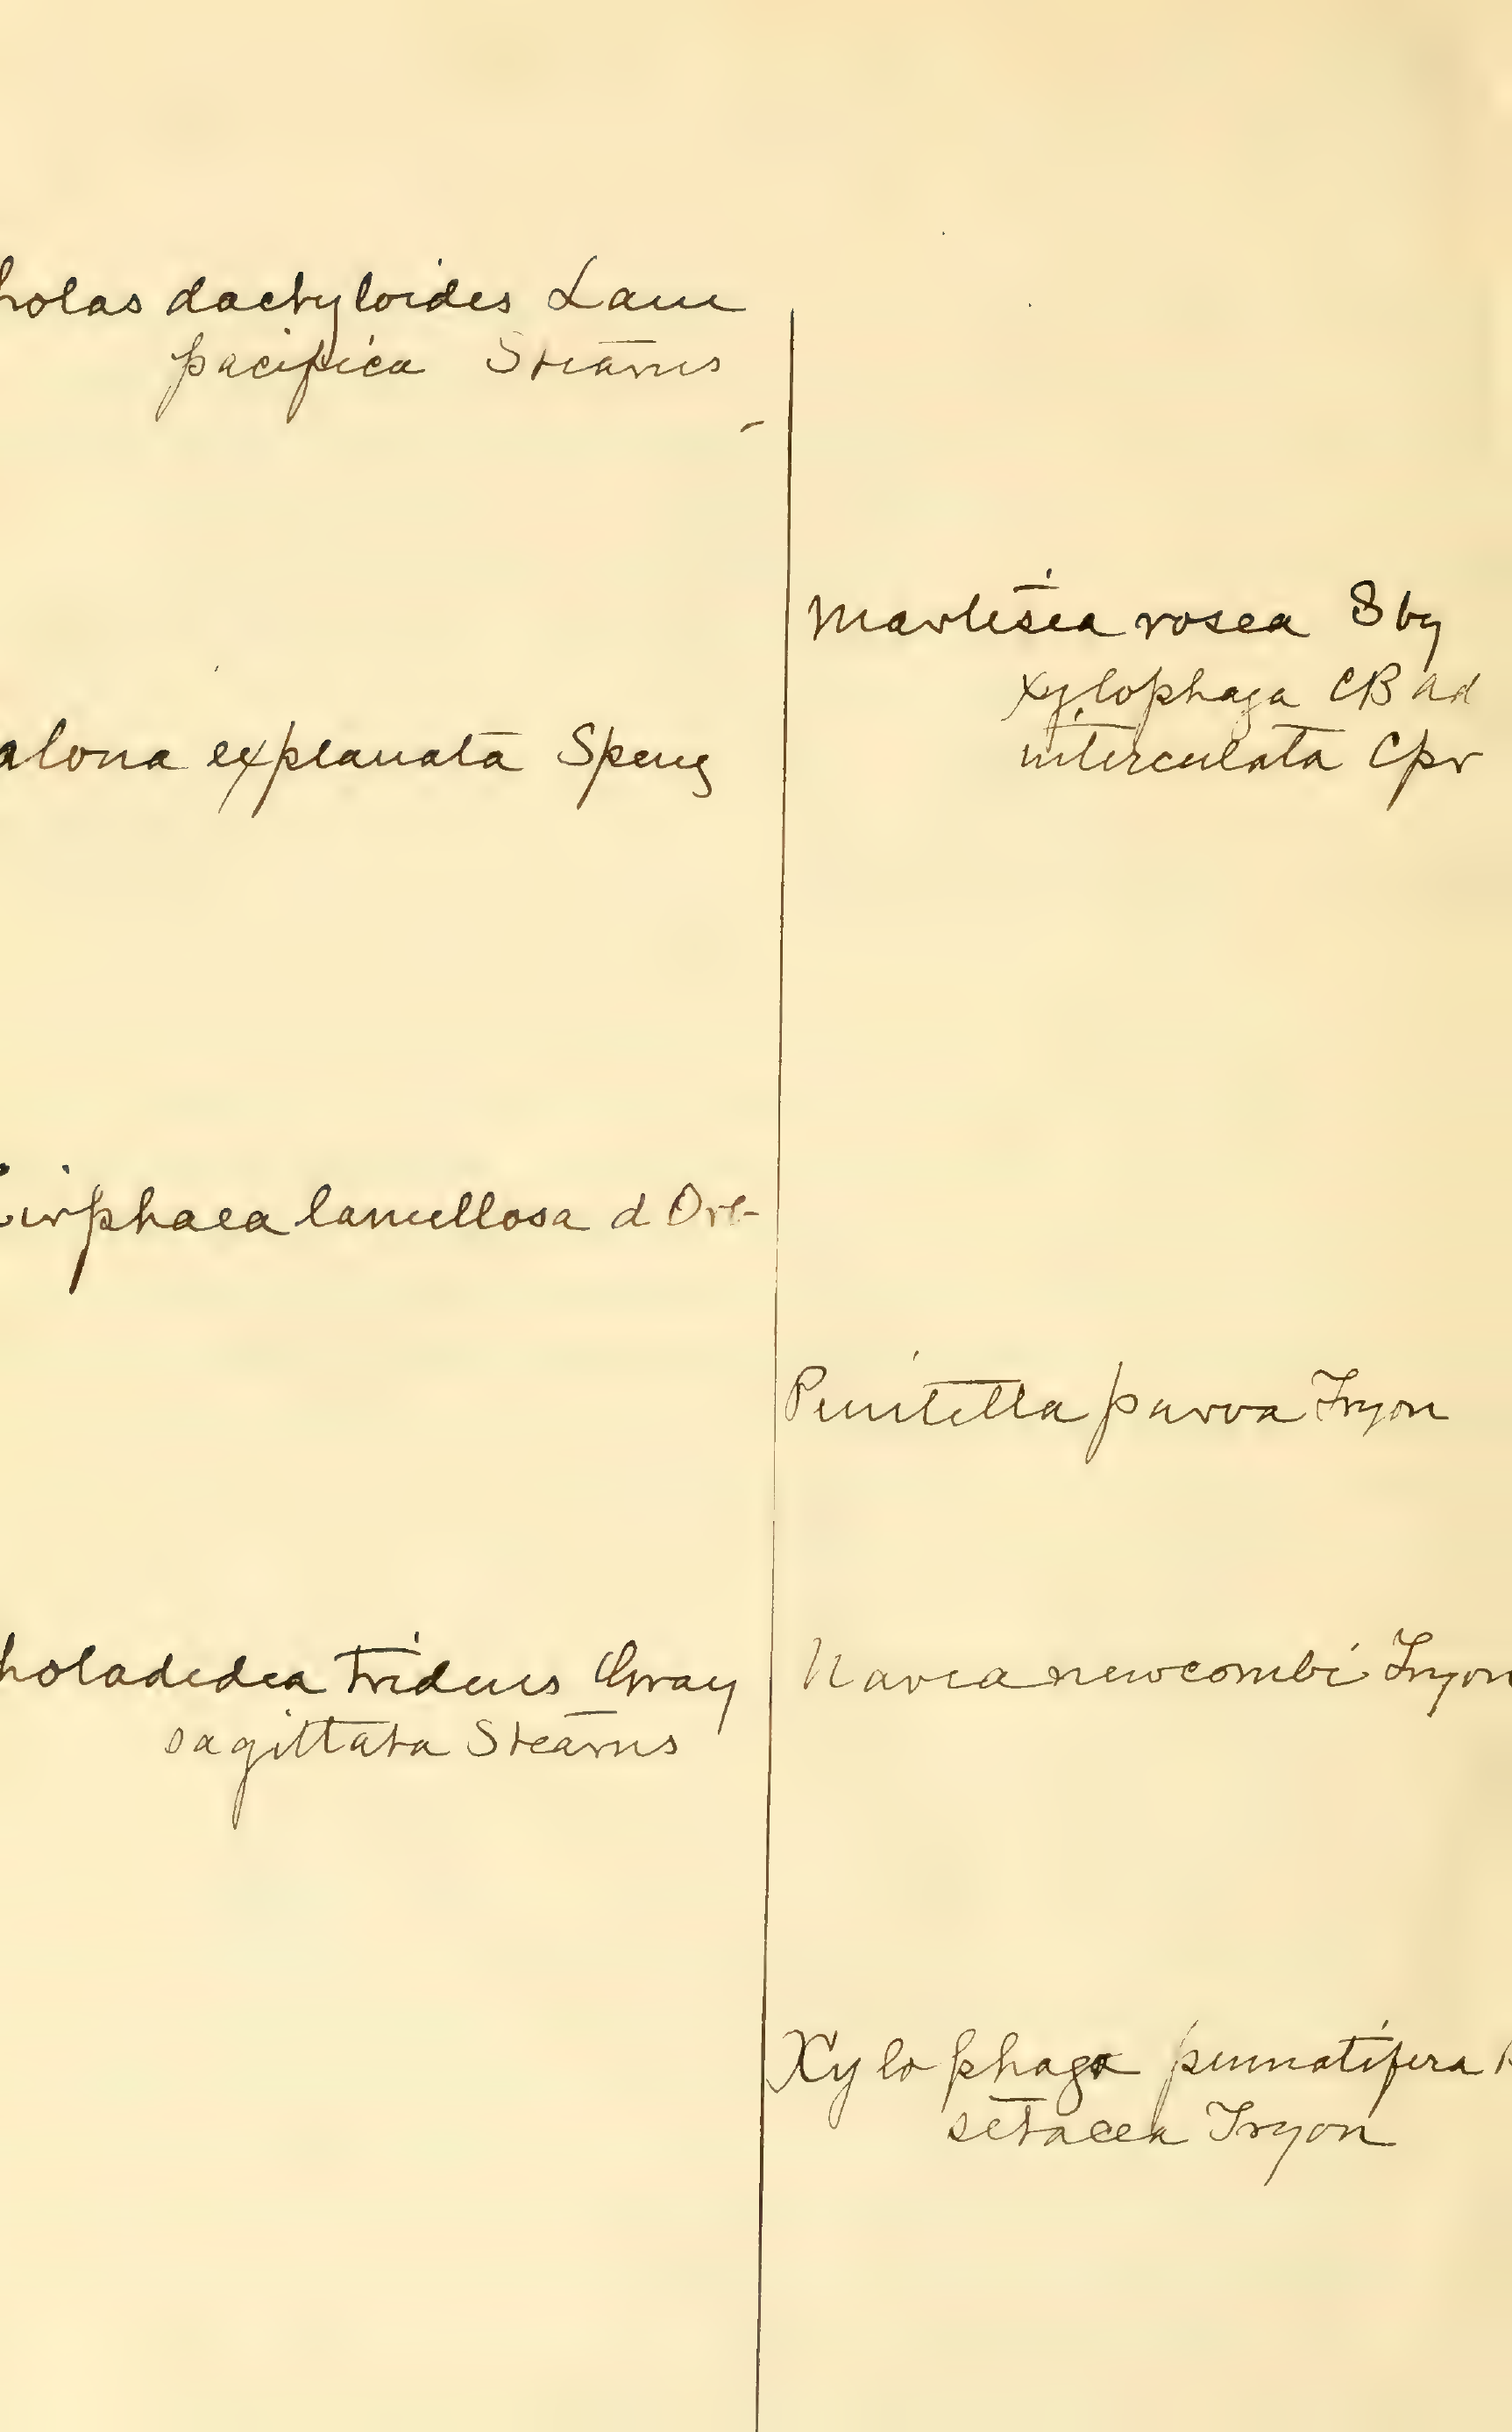 holas dactyloides Lam
pacifica Stearns
alona explanata Speng
irphaea lamellosa d Orb
holadidea tridens Gray
sagittata Stearns
Martesia rosea Sby
xylophaga CB Ad
intercalata Cpr
Penitella parva Tryon
Navea newcombi Tryon
Xylophaga
setacea Tryon